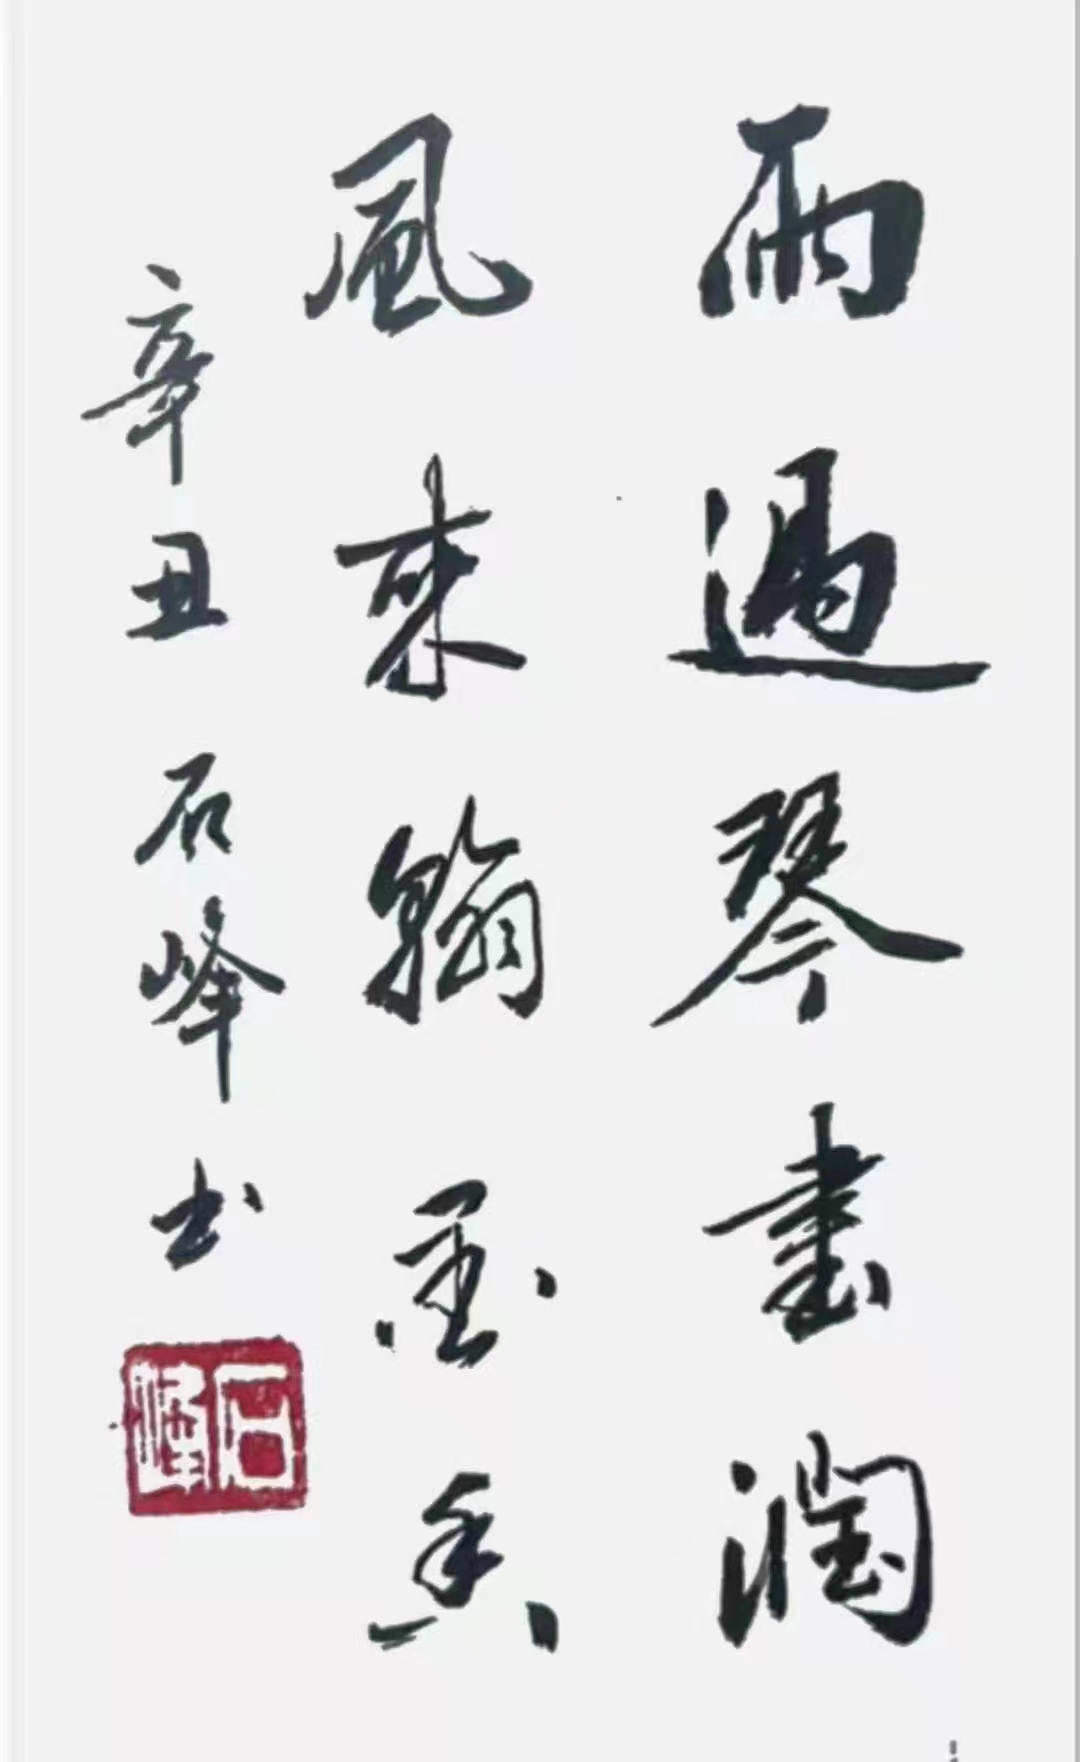 雨過琴書潤
風來翰墨香
辛丑石峰书
石峰